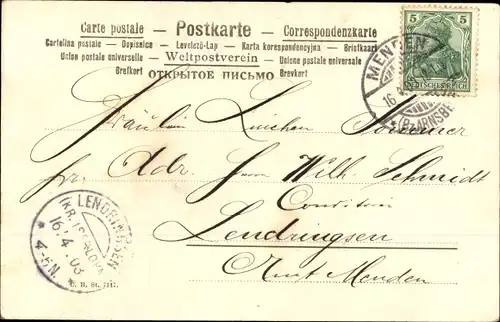 Carte postale — Postkarte — Correspondenzkarte
Cartolina postale — Dopisnice — Levelező-Lap — Karta korespondencyjna — Briefkaart
Union postale universelle — Weltpostverein — Unione postale universale
Brefkort — ОТКРЫТОЕ ПИСЬМО — Brevkort
5 5
DEUTSCHES REICH
MENDEN
16
(Bz. ARNSBE
Fräulein Linchen
pr. Adr. Herrn Wilh. Schmidt
Conditor
Lendringsen
Amt Menden
LENDRINGSEN
(KR. ISERLOHN)
16.4.03
* 4-5N. *
St. 7117.